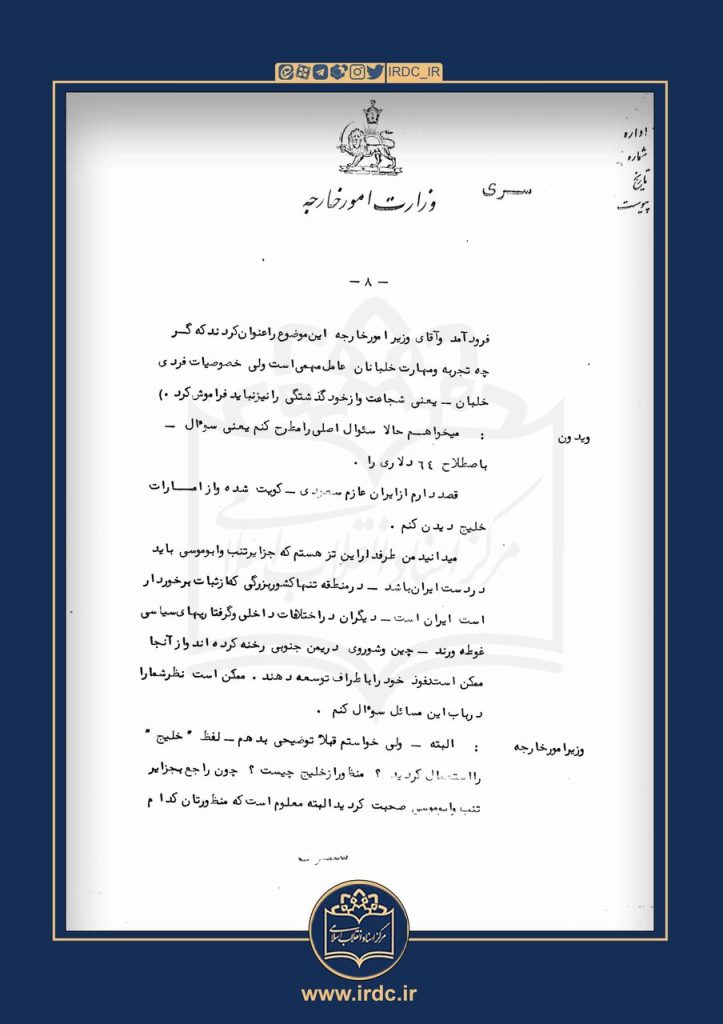 IRDC_IR
اداره
شماره
تاریخ
پیوست
سری
وزارت امور خارجه
— ۸ —
فرود آمد و آقای وزیر امور خارجه این موضوع را عنوان کردند که گر
چه تجربه و مهارت خلبانان عامل مهمی است ولی خصوصیات فردی
خلبان — یعنی شجاعت و از خود گذشتگی را نیز نباید فراموش کرد .)
ویدون : میخواهم حالا سئوال اصلی را مطرح کنم یعنی سوٴال —
باصطلاح ٦٤ دلاری را .
قصد دارم از ایران عازم سعودی — کویت شده و از امارات
خلیج دیدن کنم .
میدانید من طرفدار این تز هستم که جزایر تنب و ابوموسی باید
در دست ایران باشد — در منطقه تنها کشور بزرگی که از ثبات برخوردار
است ایران است — دیگران در اختلافات داخلی و گرفتاریهای سیاسی
غوطه ورند — چین و شوروی در یمن جنوبی رخنه کرده اند و از آنجا
ممکن است نفوذ خود را باطراف توسعه دهند . ممکن است نظر شما را
در باب این مسائل سوٴال کنم .
وزیر امور خارجه : البته — ولی خواستم قبلاً توضیحی بدهم — لفظ "خلیج"
را استعمال کردید ؟ منظور از خلیج چیست ؟ چون راجع بجزایر
تنب و ابوموسی صحبت کردید البته معلوم است که منظورتان کدام
سری
مرکز اسناد انقلاب اسلامی
www.irdc.ir